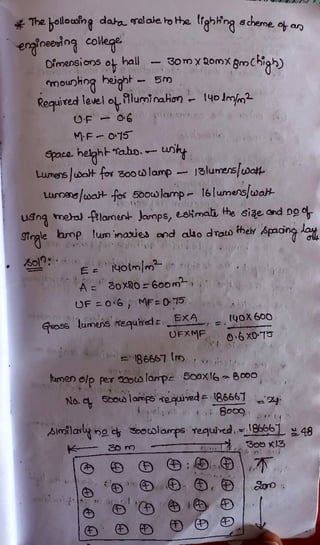 * The following data relate to the lighting scheme of an
engineering college
Dimensions of hall — 30m x 20m x 8m (high)
mounting height - 5m
Required level of illumination - 140 lm/m²
U.F - 0.6
M.F - 0.75
Space height ratio. — unity
Lumens/watt for 300w lamp — 13 lumens/watt
Lumens/watt for 500w lamp - 16 lumens/watt
using metal filament lamps, estimate the size and no of
single lamp luminaries and also draw their spacing lay out
Sol?:-
E = 140 lm/m²
A = 30x80 = 600m²
UF = 0.6, MF = 0.75
Gross lumens required = EXA / UFXMF = 140x600 / 0.6x0.75
= 186667 lm
lumen o/p per 500w lamp = 500x16 = 8000
No. of 500w lamps required = 186667 / 8000 = 24.
Similarly no of 300w lamps required. = 186667 / 300x13 ≅ 48
30 m
20m